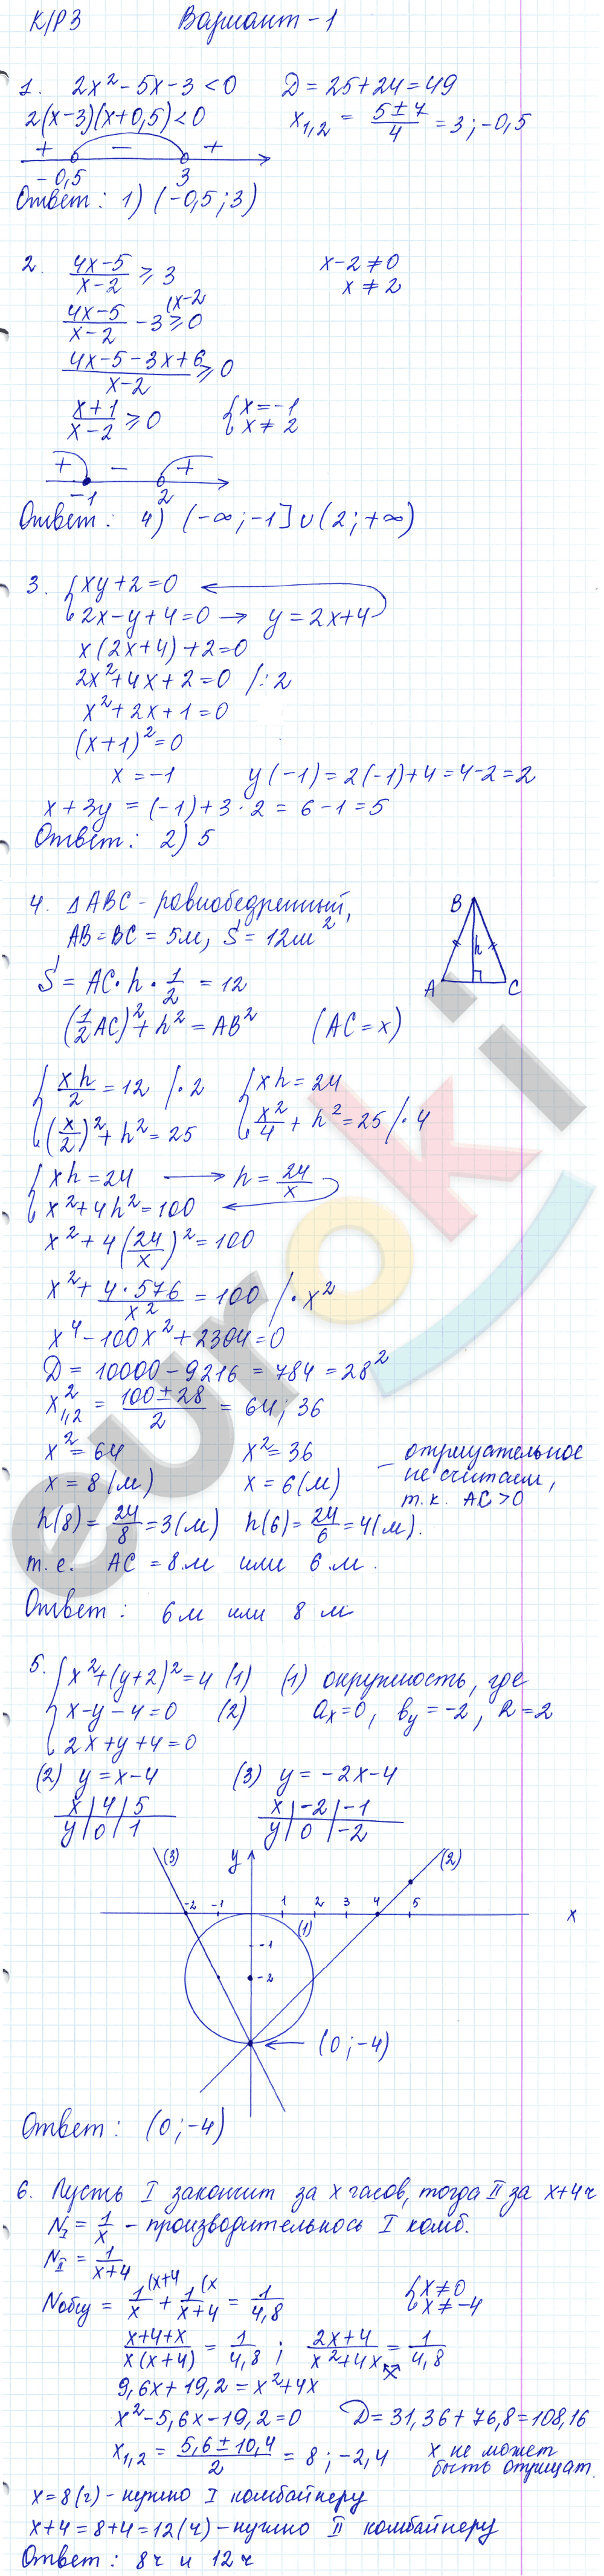 К/Р 3 Вариант - 1
1. 2x² - 5x - 3 < 0 D = 25 + 24 = 49
2(x-3)(x+0,5) < 0 x₁,₂ = (5±7)/4 = 3; -0,5
+ - +
-0,5 3
Ответ: 1) (-0,5; 3)
2. (4x-5)/(x-2) ⩾ 3 x-2 ≠ 0
x ≠ 2
(4x-5)/(x-2) - 3 (x-2 ⩾ 0
(4x-5-3x+6)/(x-2) ⩾ 0
(x+1)/(x-2) ⩾ 0 { x = -1
x ≠ 2
+ - +
-1 2
Ответ: 4) (-∞; -1] ∪ (2; +∞)
3. { xy + 2 = 0 ←
2x - y + 4 = 0 → y = 2x+4
x(2x+4) + 2 = 0
2x² + 4x + 2 = 0 /: 2
x² + 2x + 1 = 0
(x+1)² = 0
x = -1 y(-1) = 2(-1)+4 = 4-2 = 2
x + 3y = (-1) + 3·2 = 6-1 = 5
Ответ: 2) 5
4. △ABC - равнобедренный,
AB = BC = 5м, S = 12м²
B
h
A C
S = AC · h · 1/2 = 12
(1/2 AC)² + h² = AB² (AC = x)
{ xh/2 = 12 /·2 { xh = 24
(x/2)² + h² = 25 x²/4 + h² = 25 /·4
{ xh = 24 → h = 24/x
x² + 4h² = 100 ←
x² + 4(24/x)² = 100
x² + 4·576/x² = 100 /· x²
x⁴ - 100x² + 2304 = 0
D = 10000 - 9216 = 784 = 28²
x²₁,₂ = (100±28)/2 = 64; 36
x² = 64 x² = 36 - отрицательное
x = 8 (м) x = 6 (м) не считаем,
т.к. AC > 0
h(8) = 24/8 = 3 (м) h(6) = 24/6 = 4 (м).
т.е. AC = 8 м или 6 м.
Ответ: 6 м или 8 м
5. { x² + (y+2)² = 4 (1) (1) окружность, где
x - y - 4 = 0 (2) aₓ = 0, b_y = -2, R = 2
2x + y + 4 = 0
(2) y = x-4 (3) y = -2x-4
x | 4 | 5 x | -2 | -1
y | 0 | 1 y | 0 | -2
(3) y (2)
-2 -1 1 2 3 4 5 x
(1)
-1
-2
(0; -4)
Ответ: (0; -4)
6. Пусть I закончит за x часов, тогда II за x+4 ч
N_I = 1/x - производительнось I комб.
N_II = 1/(x+4)
Nобщ = 1/x (x+4 + 1/(x+4) (x = 1/4,8 { x ≠ 0
x ≠ -4
(x+4+x)/(x(x+4)) = 1/4,8 ; (2x+4)/(x²+4x) = 1/4,8
9,6x + 19,2 = x² + 4x
x² - 5,6x - 19,2 = 0 D = 31,36 + 76,8 = 108,16
x₁,₂ = (5,6 ± 10,4)/2 = 8; -2,4 x не может
быть отрицат.
x = 8 (ч) - нужно I комбайнеру
x+4 = 8+4 = 12 (ч) - нужно II комбайнеру
Ответ: 8ч и 12ч
euroki